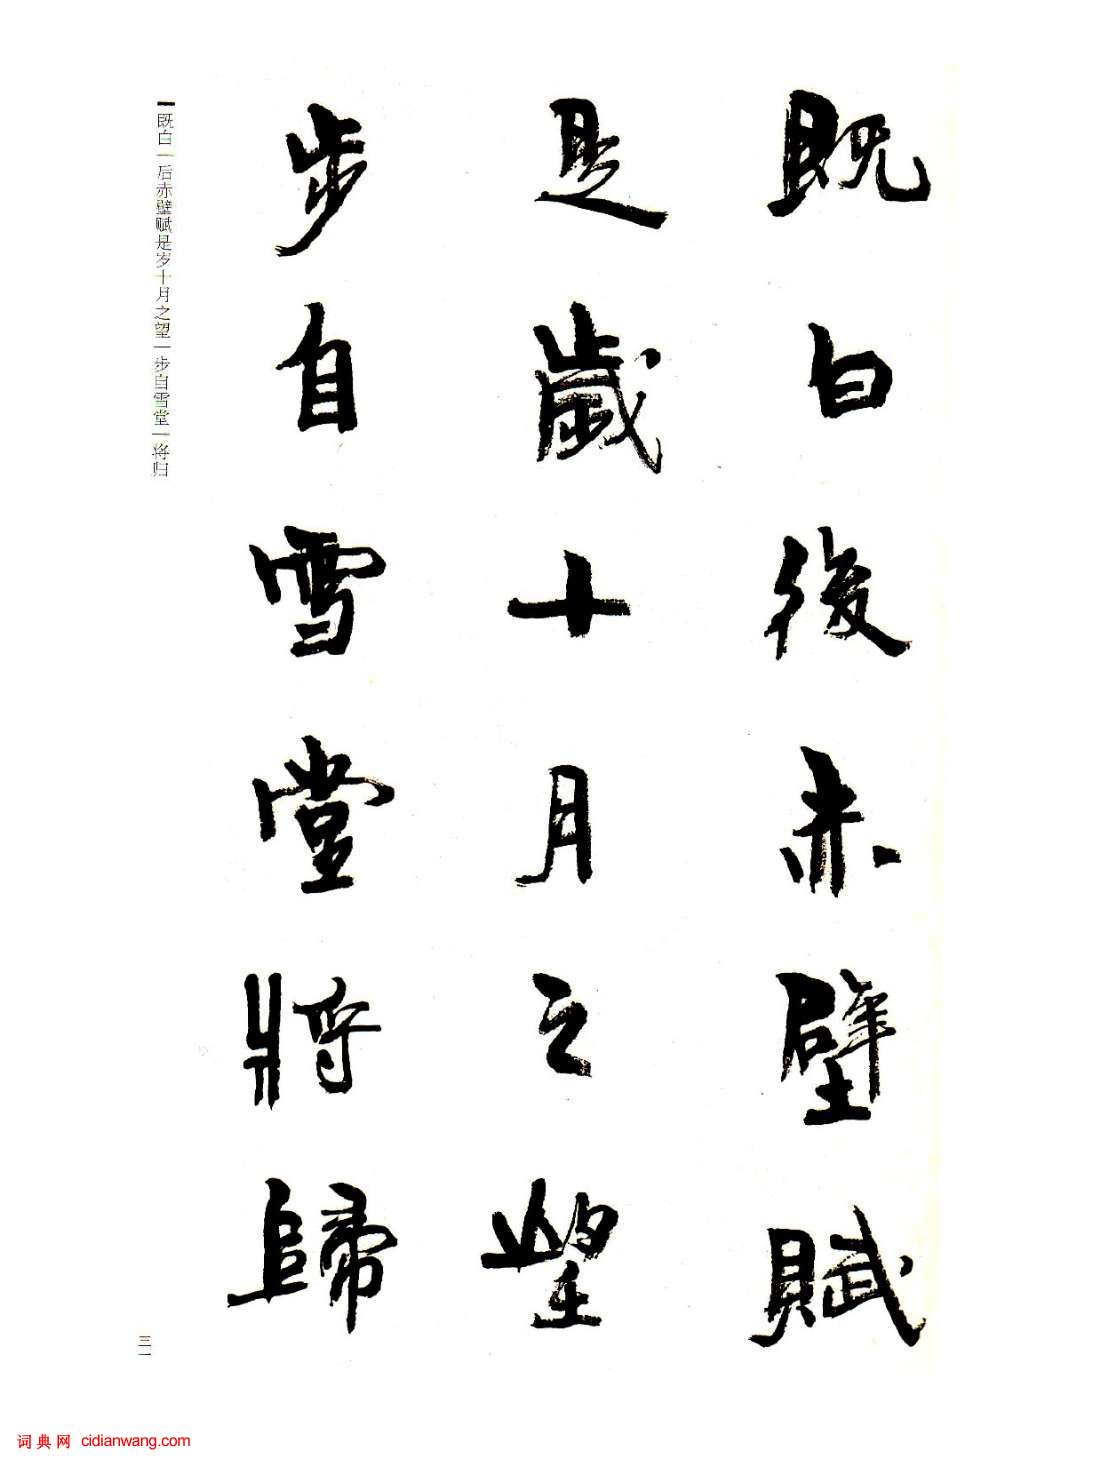 既白後赤壁賦
是歲十月之望
步自雪堂將歸
既白一后赤壁赋是岁十月之望一步自雪堂一将归
三一
词典网 cidianwang.com